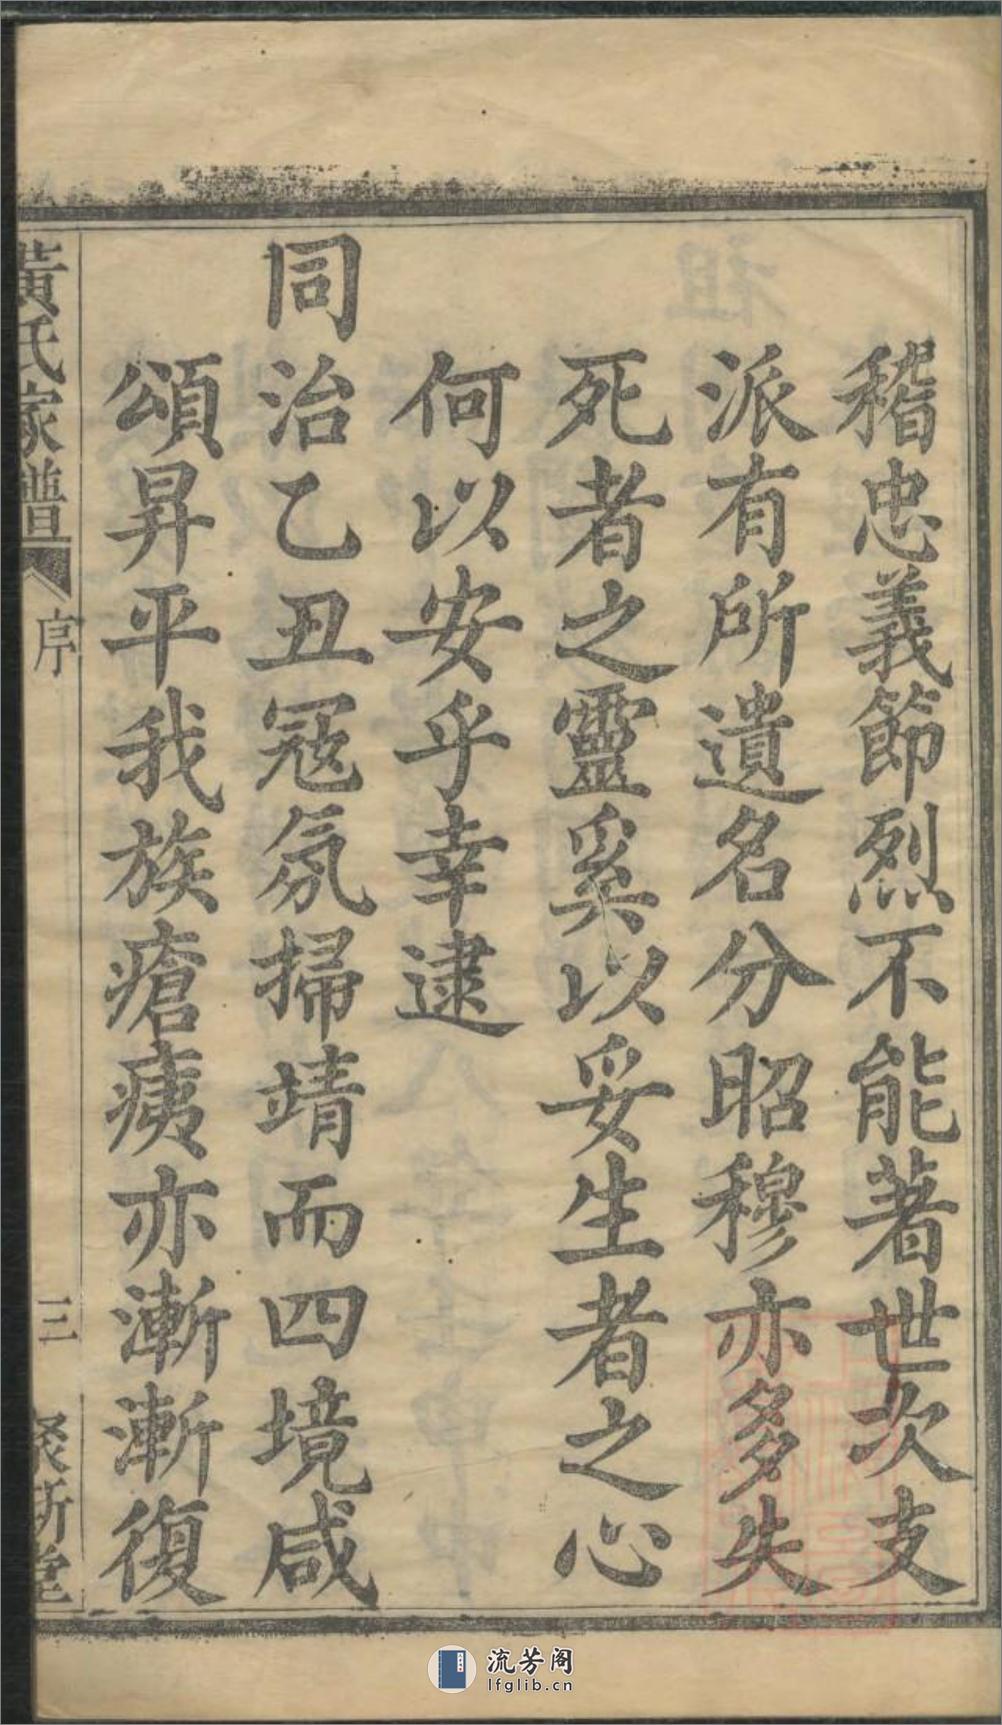 稽忠義節烈不能著世次支
派有所遺名分昭穆亦多失
死者之靈奚以妥生者之心
何以安乎幸逮
同治乙丑冦氛掃靖而四境咸
頌昇平我族瘡痍亦漸漸復
黃氏家譜 序 三
流芳阁
lfglib.cn